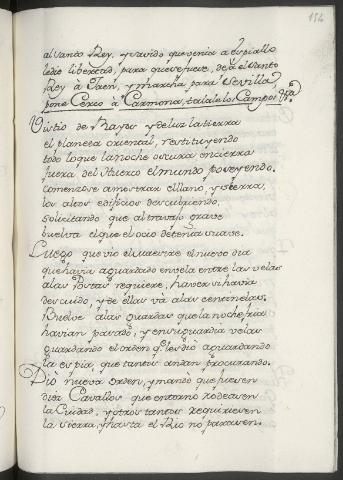 154
al santo Rey, y savido que venia a espiallo
ledio libertad, para que se fuese, dexa el santo
Rey à Jaen, y marcha para Sevilla,
pone Cerco à Carmona, talale los Campos &ra
Vistio de Rayos y de luz la tierra
el planeta oriental, restituyendo
todo lo que la noche oscura encierra
fuera del Huerco el mundo poseyendo.
Comenzose a mostrar el llano, y sierra,
los altos edificios descubriendo,
solicitando que al travajo grave
buelva el que el ocio detenia suave.
Luego que vio el maestre el nuevo dia
que havia aguardado en vela entre las velas
a las Postas requiere, haver si havia
descuido, y de ellas và a las centinelas.
Buelve a las guardas que la noche fria
havian pasado, y en su guardia velas
guardando el orden q.e les diò aguardando
la espia, que tantos andan procurando.
Diò nueva orden, y mandò que fuesen
diez Cavallos que en torno rodeasen
la Ciudad, y otros tantos requiriesen
la sierra, y hasta el Rio no parasen.